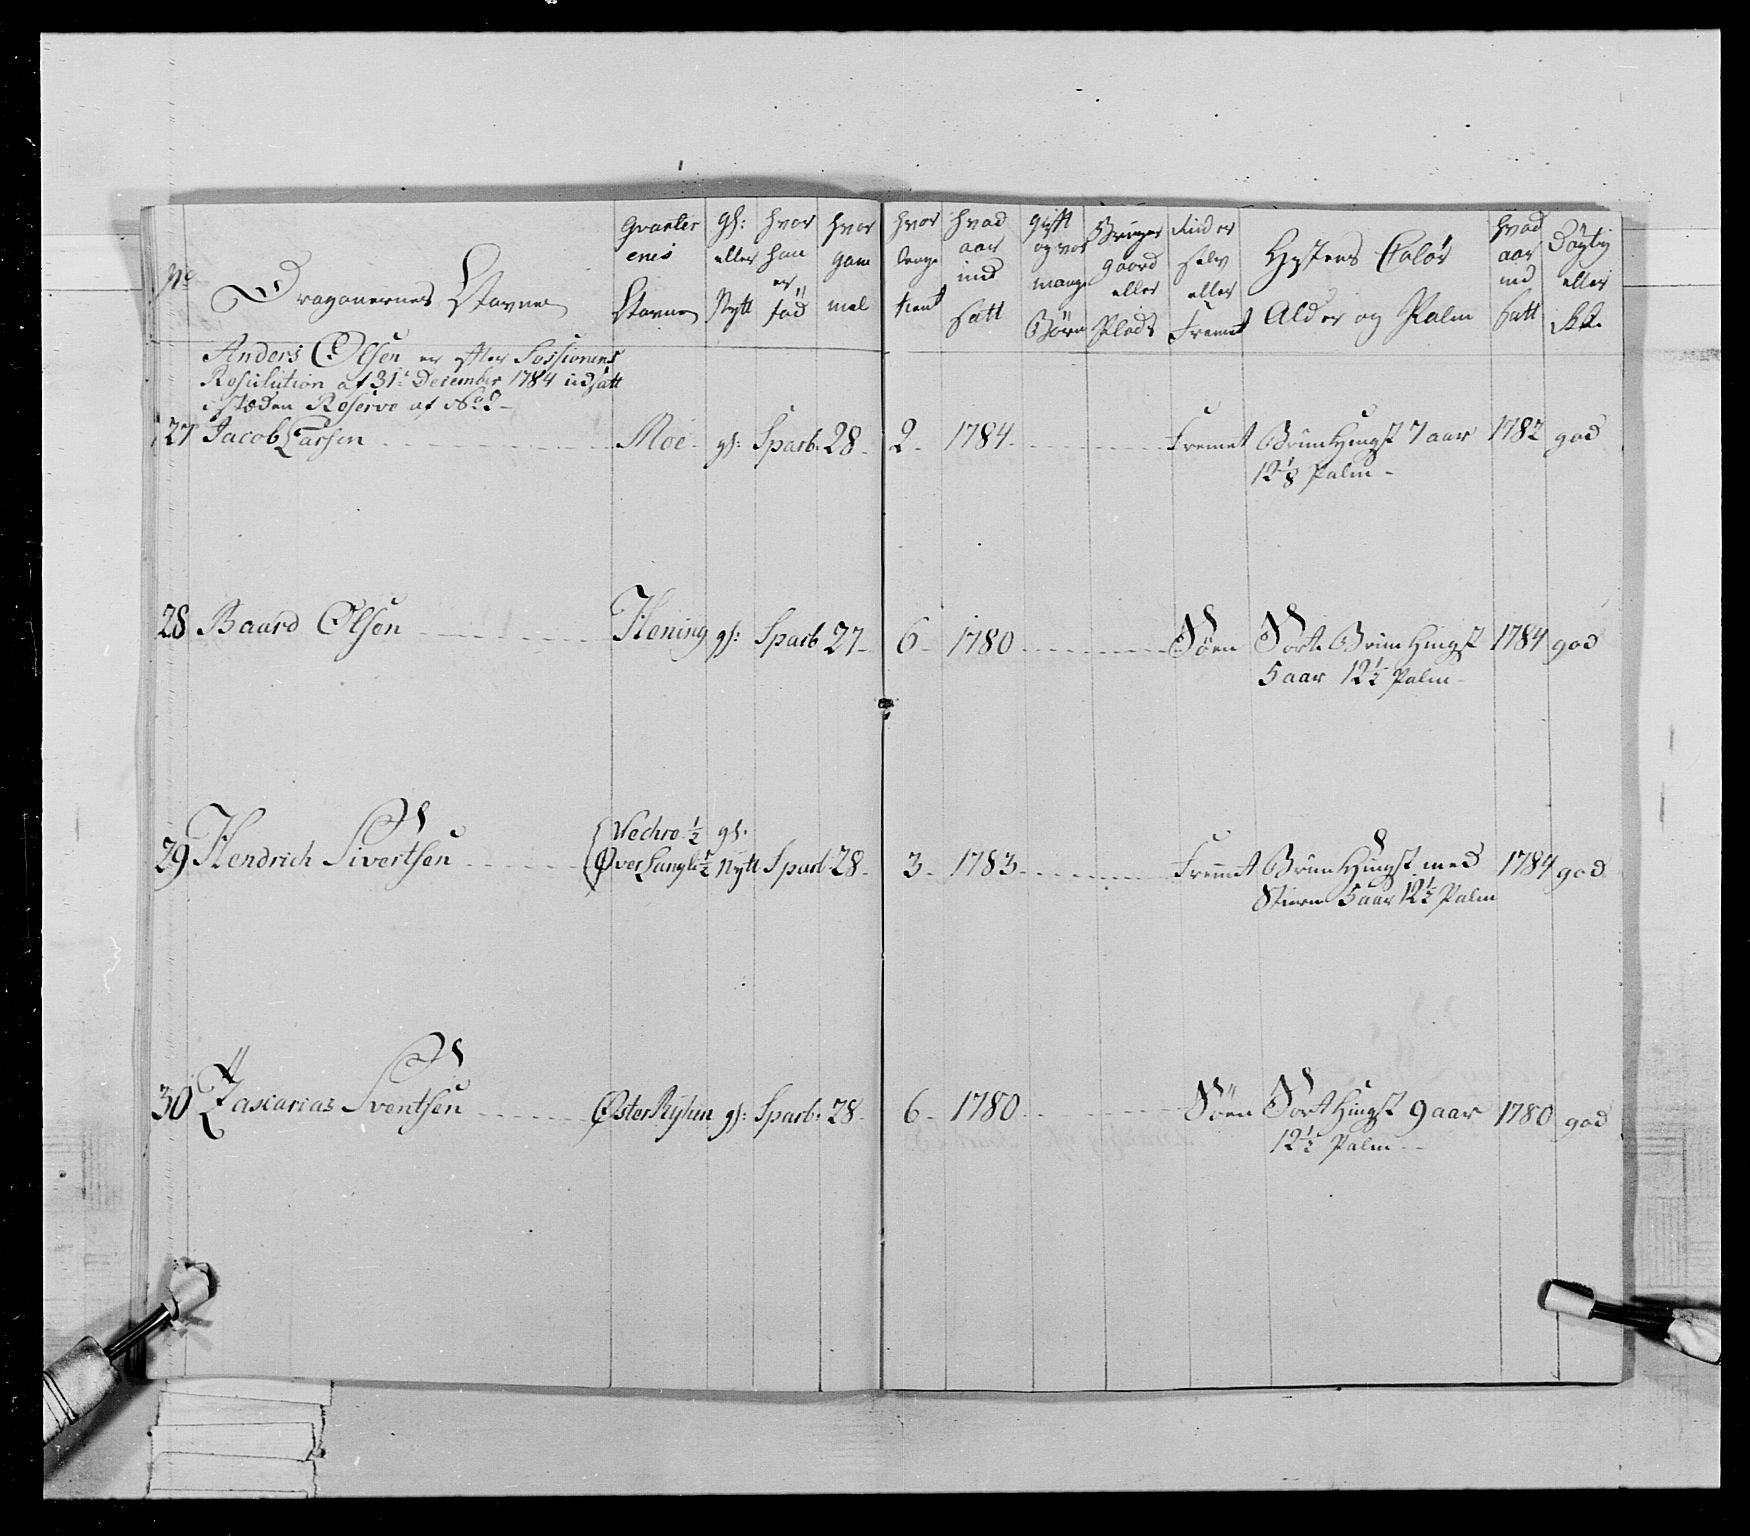 No
Dragonernes Navne
Qvarterenes Navne
gl: eller Nytt
hvor han er föd
hvor gammel
hvor lenge tient
hvad aar ind satt
gift og vor mange Börn
Bruger gaard eller Plads
Rider selv eller Fremt
Hæstens Colör Alder og Palm
hvad aar ind satt
Dögtig eller Ikke
Anders Olsen er efter Sessionens
Resulution af 31te December 1784 udsatt
i stæden Reserve af No 2
27 Jacob Larsen Moe gl: Sparb: 28 2 1784 Fremt Brun Hingst 7 aar 1782 god
12 1/8 Palm
28 Baard Olsen Hening gl: Sparb 27 6 1780 Söen Sort Brun Hingst 1784 god
5 aar 12 1/2 Palm
29 Hendrich Sivertsen Wechre 1/2 gl. Over Langli 1/2 Nytt Sparb 28 3 1783 Fremt Brun Hingst med 1784 god
Stiern 5 aar 12 1/2 Palm
30 Zascarias Sventsen Øster Rychin gl: Sparb: 28 6 1780 Söen Sort Hingst 9 aar 1780 god
12 1/2 Palm